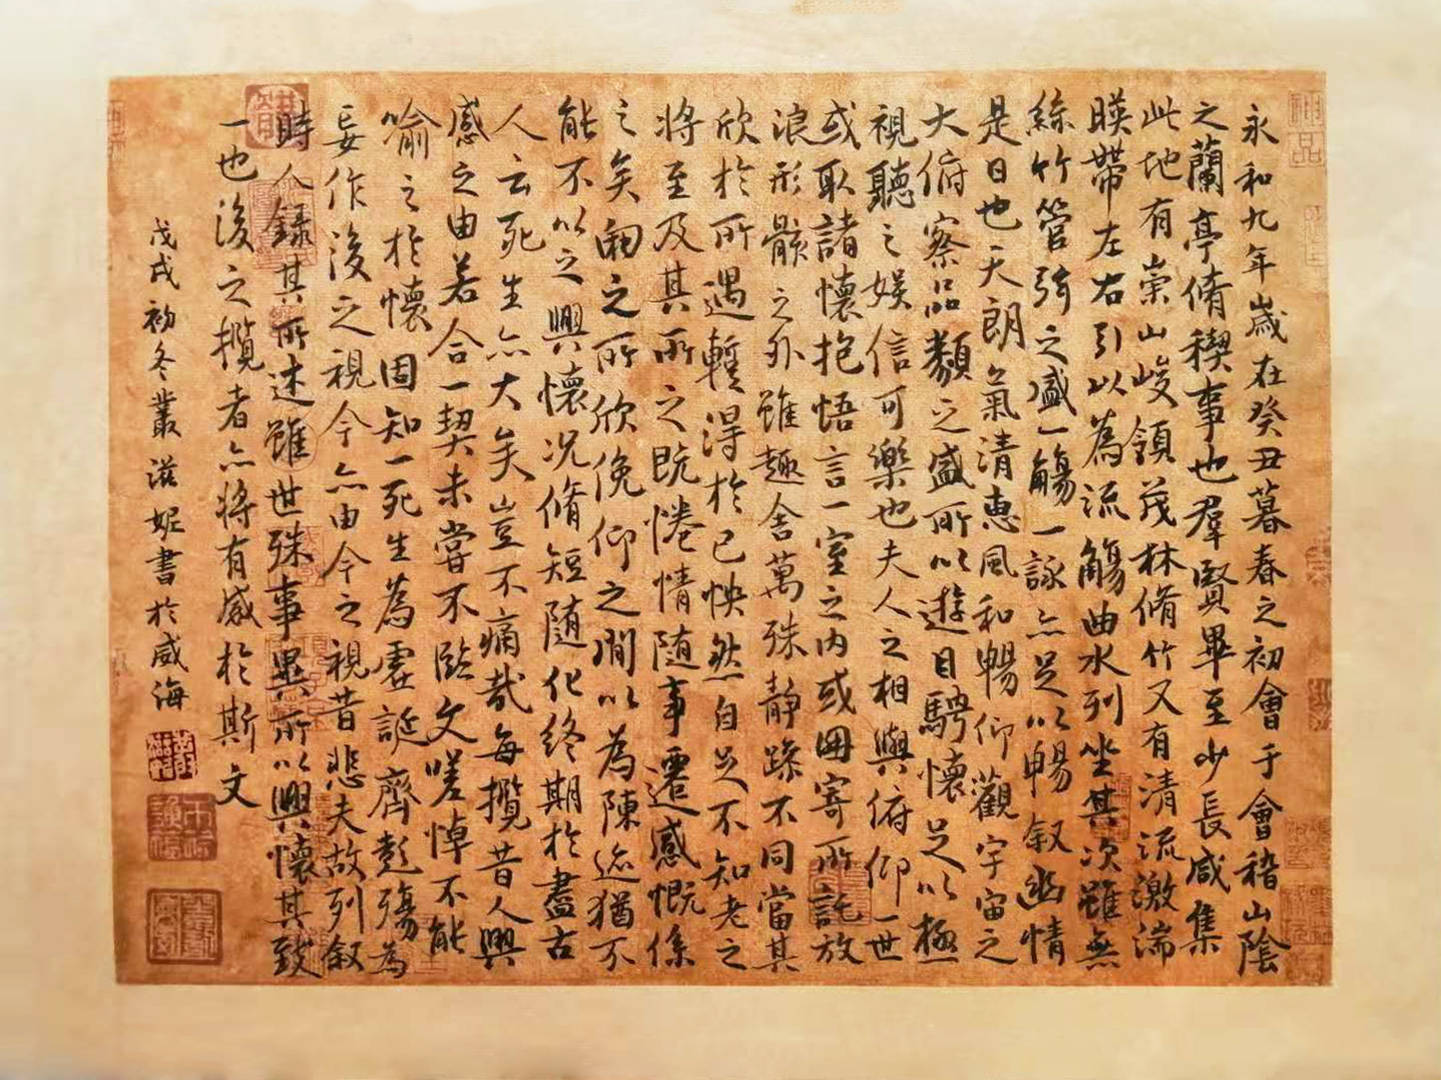 永和九年歲在癸丑暮春之初會于會稽山陰
之蘭亭脩稧事也羣賢畢至少長咸集
此地有崇山峻領茂林脩竹又有清流激湍
暎帶左右引以為流觴曲水列坐其次雖無
絲竹管弦之盛一觴一詠亦足以暢叙幽情
是日也天朗氣清惠風和暢仰觀宇宙之
大俯察品類之盛所以遊目騁懷足以極
視聽之娛信可樂也夫人之相與俯仰一世
或取諸懷抱悟言一室之內或因寄所託放
浪形骸之外雖趣舍萬殊靜躁不同當其
欣於所遇蹔得於己怏然自足不知老之
將至及其所之既惓情隨事遷感慨係
之矣向之所欣俛仰之間以為陳迹猶不
能不以之興懷況脩短隨化終期於盡古
人云死生亦大矣豈不痛哉每攬昔人興
感之由若合一契未嘗不臨文嗟悼不能
喻之於懷固知一死生為虛誕齊彭殤為
妄作後之視今亦由今之視昔悲夫故列叙
時人錄其所述雖世殊事異所以興懷其致
一也後之攬者亦將有感於斯文
戊戌初冬叢滋妮書於威海